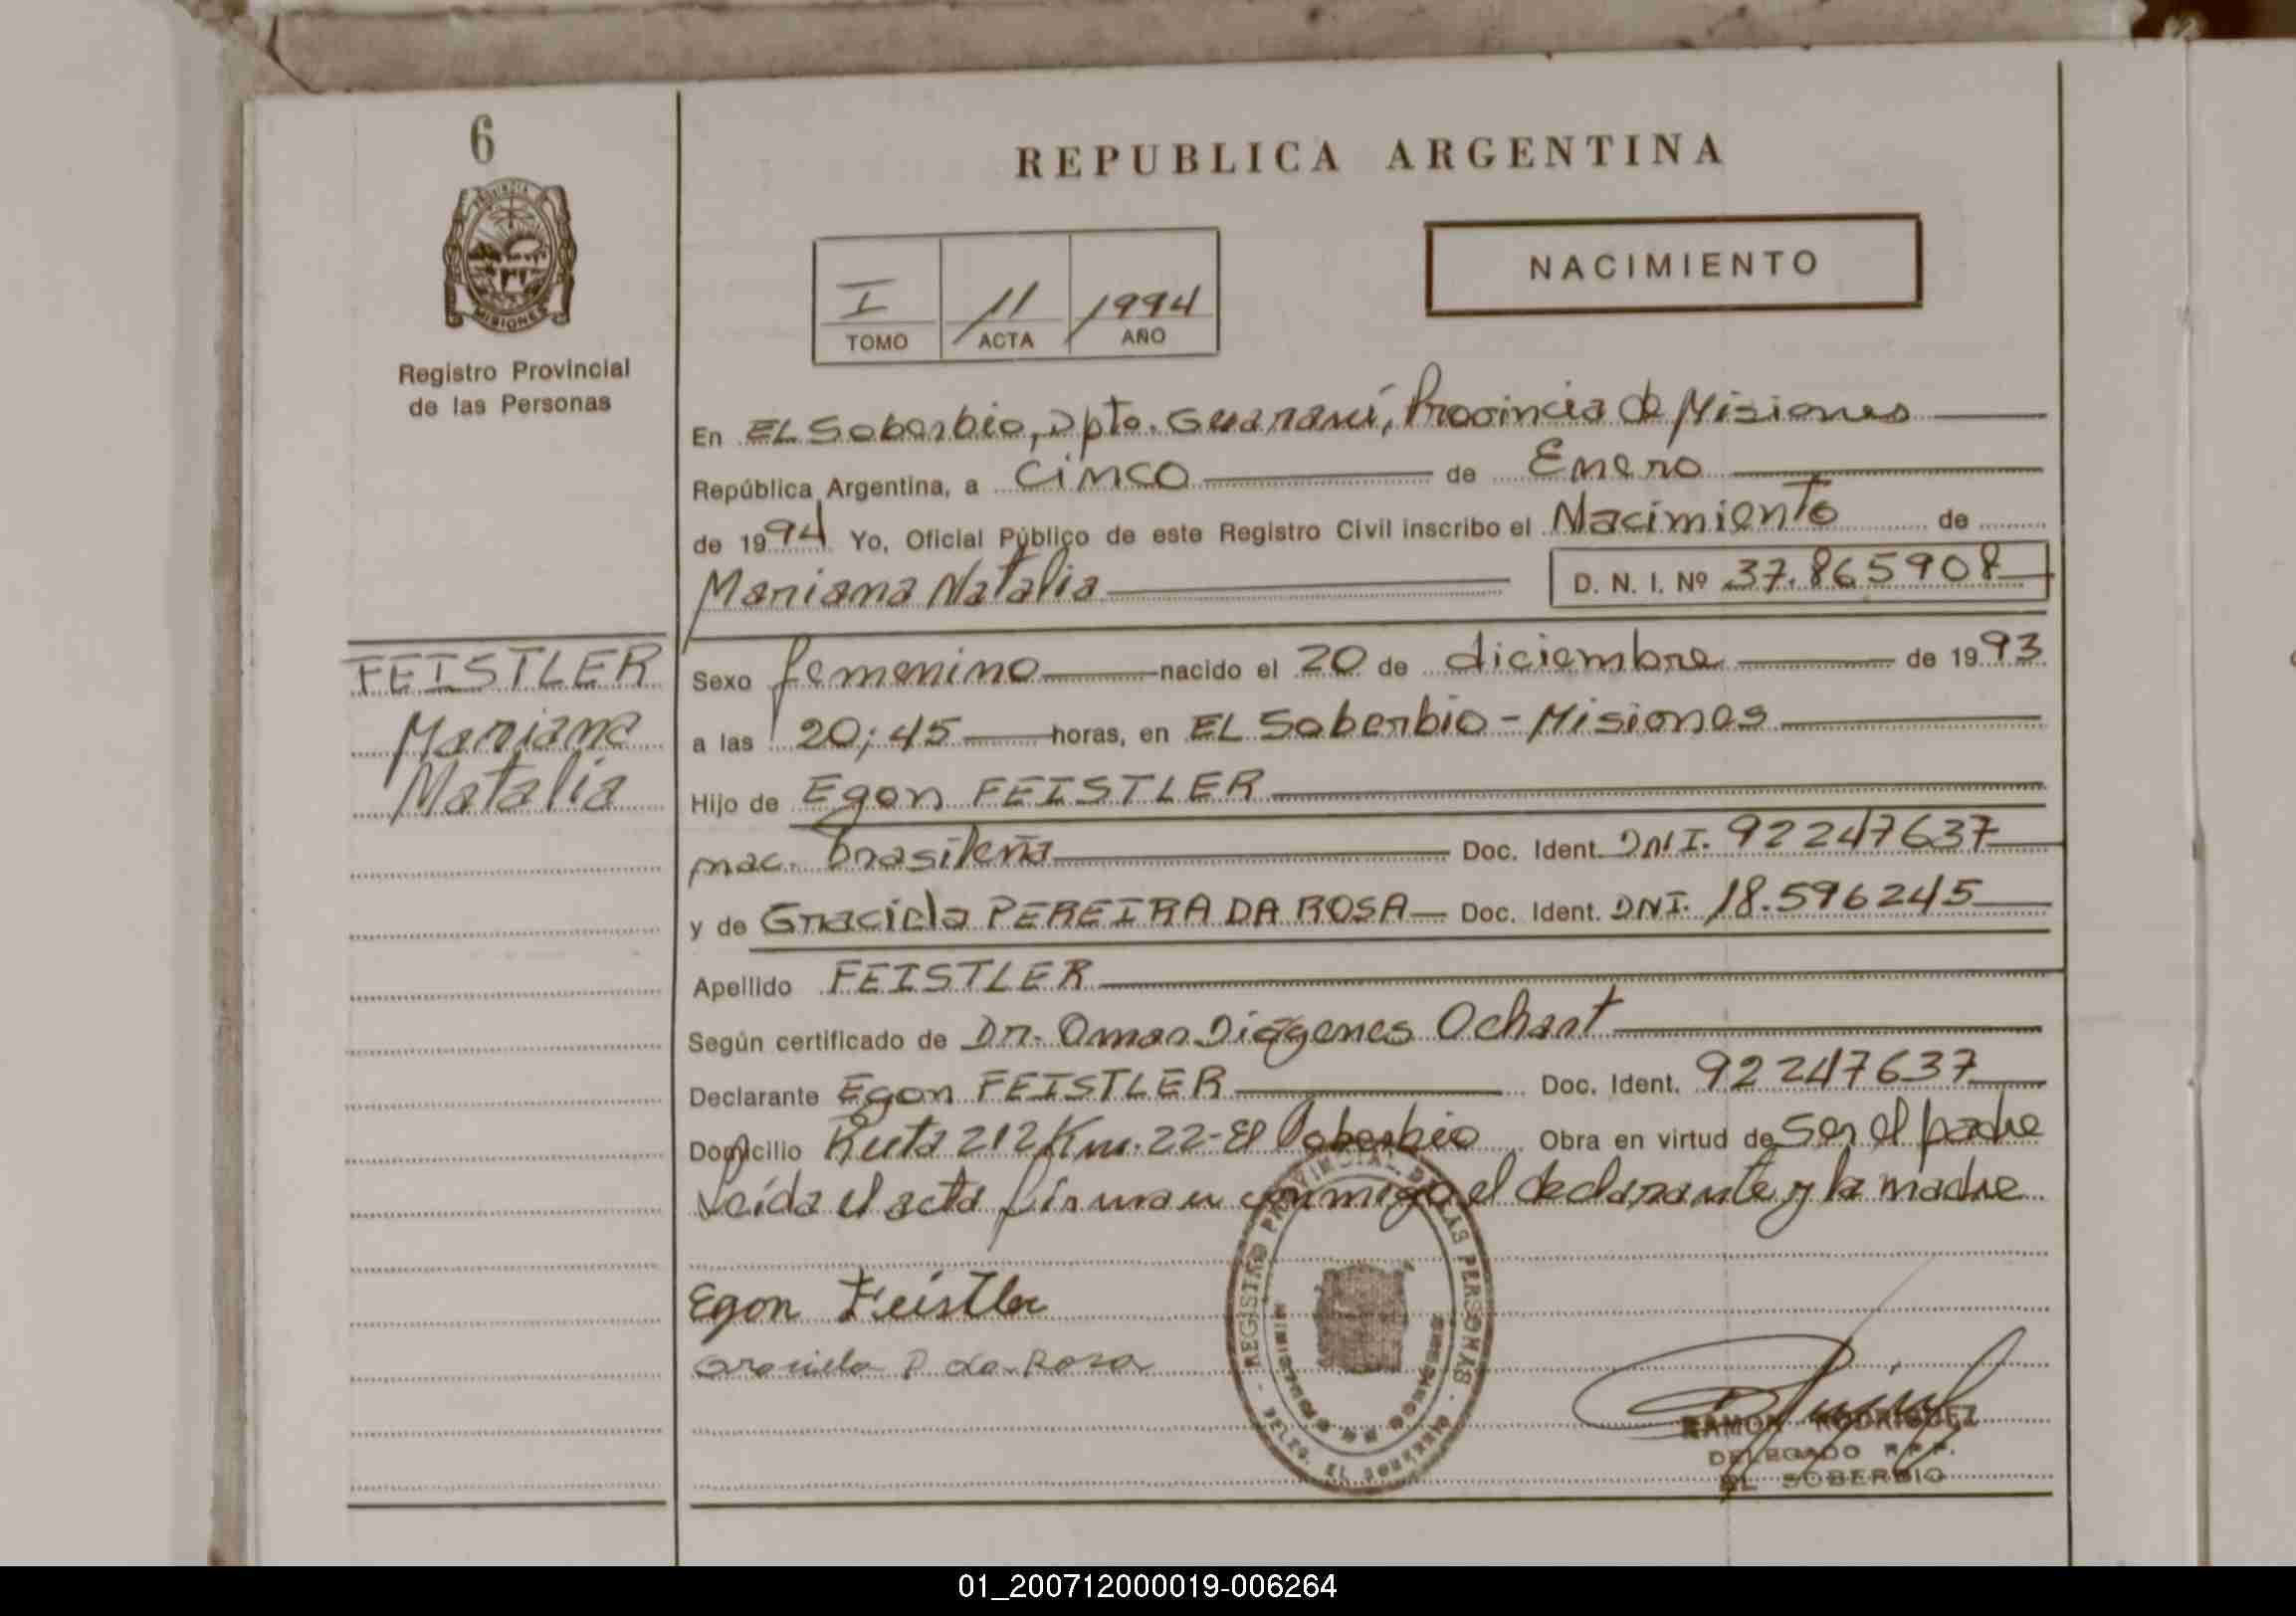 6
PROVINCIA
MISIONES
Registro Provincial
de las Personas
FEISTLER
Mariana
Natalia
REPUBLICA ARGENTINA
I 11 1994
TOMO ACTA AÑO
NACIMIENTO
En EL Soberbio, Dpto. Guaraní, Provincia de Misiones
República Argentina, a cinco de Enero
de 1994 Yo, Oficial Público de este Registro Civil inscribo el Nacimiento de
Mariana Natalia D. N. I. Nº 37.865908
Sexo femenino nacido el 20 de diciembre de 1993
a las 20;45 horas, en EL Soberbio - Misiones
Hijo de Egon FEISTLER
nac. brasileña Doc. Ident. DNI. 92247637
y de Graciela PEREIRA DA ROSA Doc. Ident. DNI. 18.596245
Apellido FEISTLER
Según certificado de Dr. Omar Diógenes Ochart
Declarante Egon FEISTLER Doc. Ident. 92247637
Domicilio Ruta 212 Km. 22 - El Soberbio Obra en virtud de ser el padre
Leída el acta firman conmigo el declarante y la madre
Egon Feistler
Graciela P da Rosa
REGISTRO PROVINCIAL DE LAS PERSONAS
DELEG. EL SOBERBIO
RAMON RODRIGUEZ
DELEGADO R.P.P.
EL SOBERBIO
01_200712000019-006264